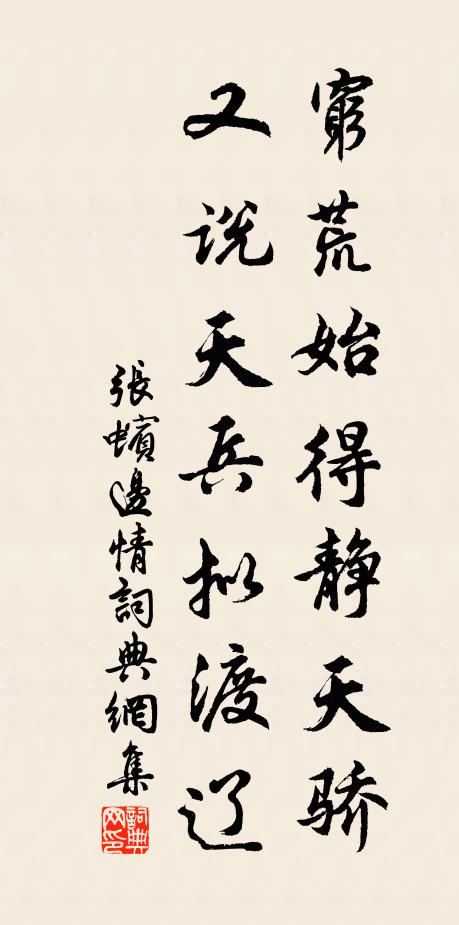 窮荒始得静天骄
又说天兵拟渡辽
張蠙邊情詞典網集
詞典网印